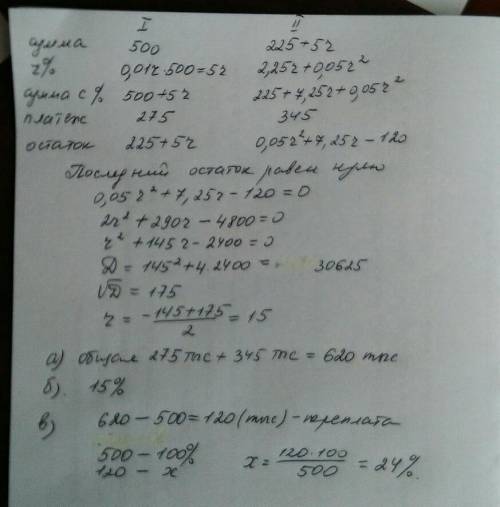 I II
сумма 500 225+5r
r% 0,01r·500=5r 2,25r+0,05r²
сумма с % 500+5r 225+7,25r+0,05r²
платеж 275 345
остаток 225+5r 0,05r²+7,25r-120
Последний остаток равен нулю
0,05r²+7,25r-120=0
2r²+290r-4800=0
r²+145r-2400=0
D=145²+4.2400= 30625
√D=175
r= -145+175/2 =15
а) общая 275тыс+345тыс=620тыс
б). 15%
в) 620-500=120(тыс)-переплата
500-100%
120-x x= 120·100/500 =24%.